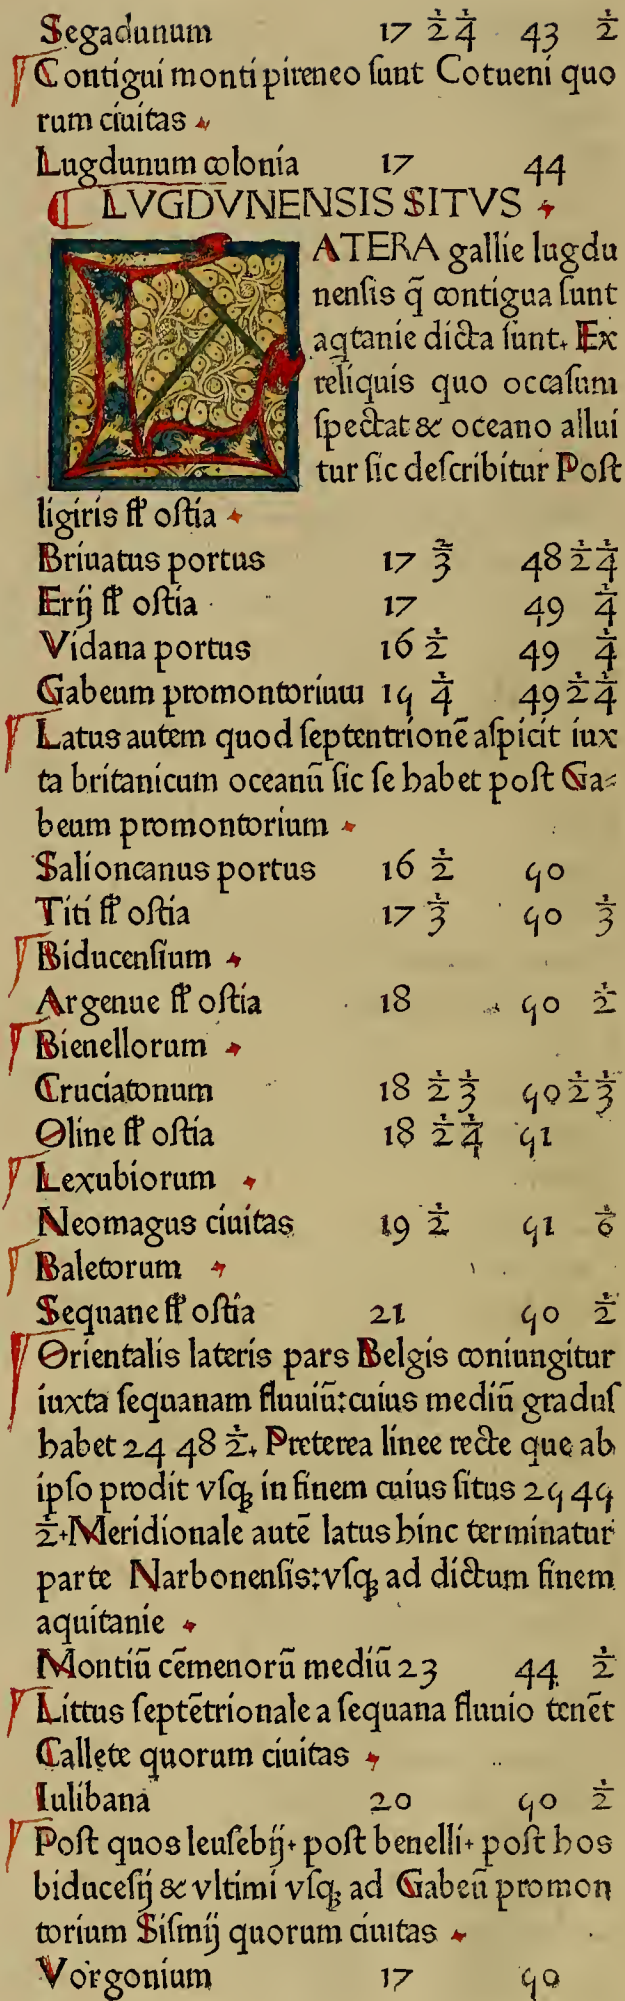 Segadunum 17 ½ ¼ 43 ½
Contigui monti pireneo ſunt Cotueni quo
rum ciuitas
Lugdunum colonia 17 44
LVGDVNENSIS SITVS
LATERA gallie lugdu
nenſis q̃ contigua ſunt
aqtanie dicta ſunt. Ex
reliquis quo occaſum
ſpectat & oceano allui
tur ſic deſcribitur Poſt
ligiris fl̄ oſtia
Briuatus portus 17 ⅔ 48 ½ ¼
Erij fl̄ oſtia 17 49 ¼
Vidana portus 16 ½ 49 ¼
Gabeum promontorium 15 ¼ 49 ½ ¼
Latus autem quod ſeptentrionē aſpicit iux
ta britanicum oceanū ſic ſe habet poſt Ga=
beum promontorium
Salioncanus portus 16 ½ 50
Titi fl̄ oſtia 17 ⅓ 50 ⅓
Biducenſium
Argenue fl̄ oſtia 18 50 ½
Bienellorum
Cruciatonum 18 ½ ⅓ 50 ½ ⅓
Oline fl̄ oſtia 18 ½ ¼ 51
Lexubiorum
Neomagus ciuitas 19 ½ 51 ⅙
Baletorum
Sequane fl̄ oſtia 21 50 ½
Orientalis lateris pars Belgis coniungitur
iuxta ſequanam fluuiū:cuius mediū graduſ
habet 24 48 ½. Preterea linee recte que ab
ipſo prodit vſqꝫ in finem cuius ſitus 25 45
½. Meridionale autē latus hinc terminatur
parte Narbonenſis:vſqꝫ ad dictum finem
aquitanie
Montiū cēmenorū mediū 23 44 ½
Littus ſeptētrionale a ſequana fluuio tenēt
Callete quorum ciuitas
Iulibana 20 50 ½
Poſt quos leuſebij. poſt benelli. poſt hos
biduceſij & vltimi vſqꝫ ad Gabeū promon
torium Siſmij quorum ciuitas
Vorgonium 17 50